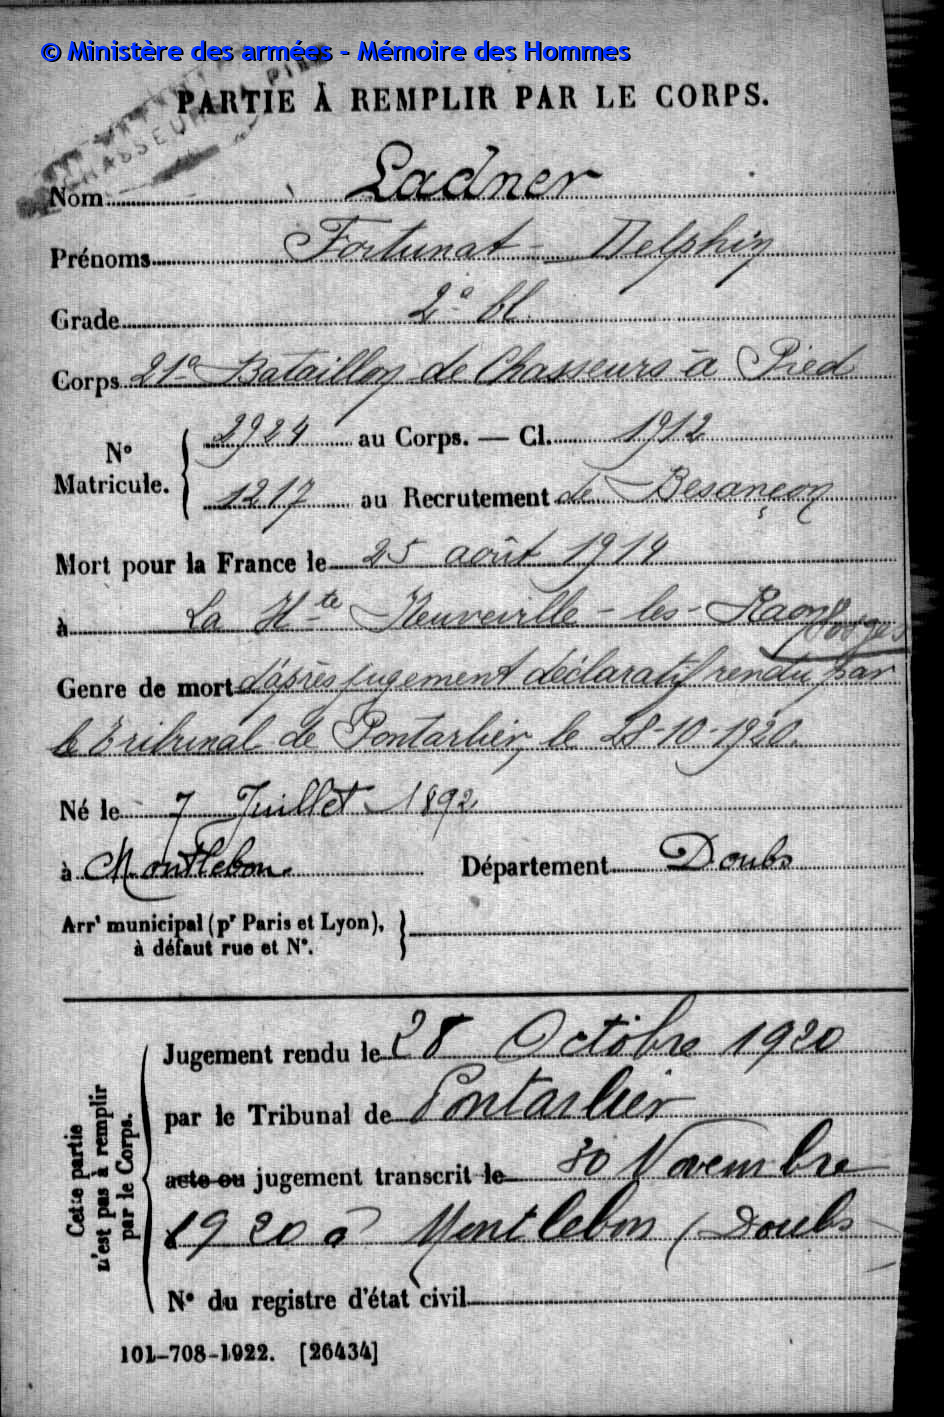 © Ministère des armées - Mémoire des Hommes
CHASSEURS À PIED
PARTIE À REMPLIR PAR LE CORPS.
Nom Ladner
Prénoms Fortunat - Delphin
Grade 2e Cl.
Corps 21e Bataillon de Chasseurs à Pied
N° Matricule. { 2924 au Corps. — Cl. 1912
1217 au Recrutement de Besançon
Mort pour la France le 25 août 1914
à La Hte Neuveville-les-Raon Vosges
Genre de mort d'après jugement déclaratif rendu par
le tribunal de Pontarlier, le 28-10-1920.
Né le 7 Juillet 1892
à Montlebon. Département Doubs
Arrt municipal (pr Paris et Lyon), }
à défaut rue et N°.
Cette partie
n'est pas à remplir
par le Corps.
Jugement rendu le 28 Octobre 1920
par le Tribunal de Pontarlier
acte ou jugement transcrit le 30 Novembre
1920 à Montlebon (Doubs
N° du registre d'état civil
101-708-1922. [26434]